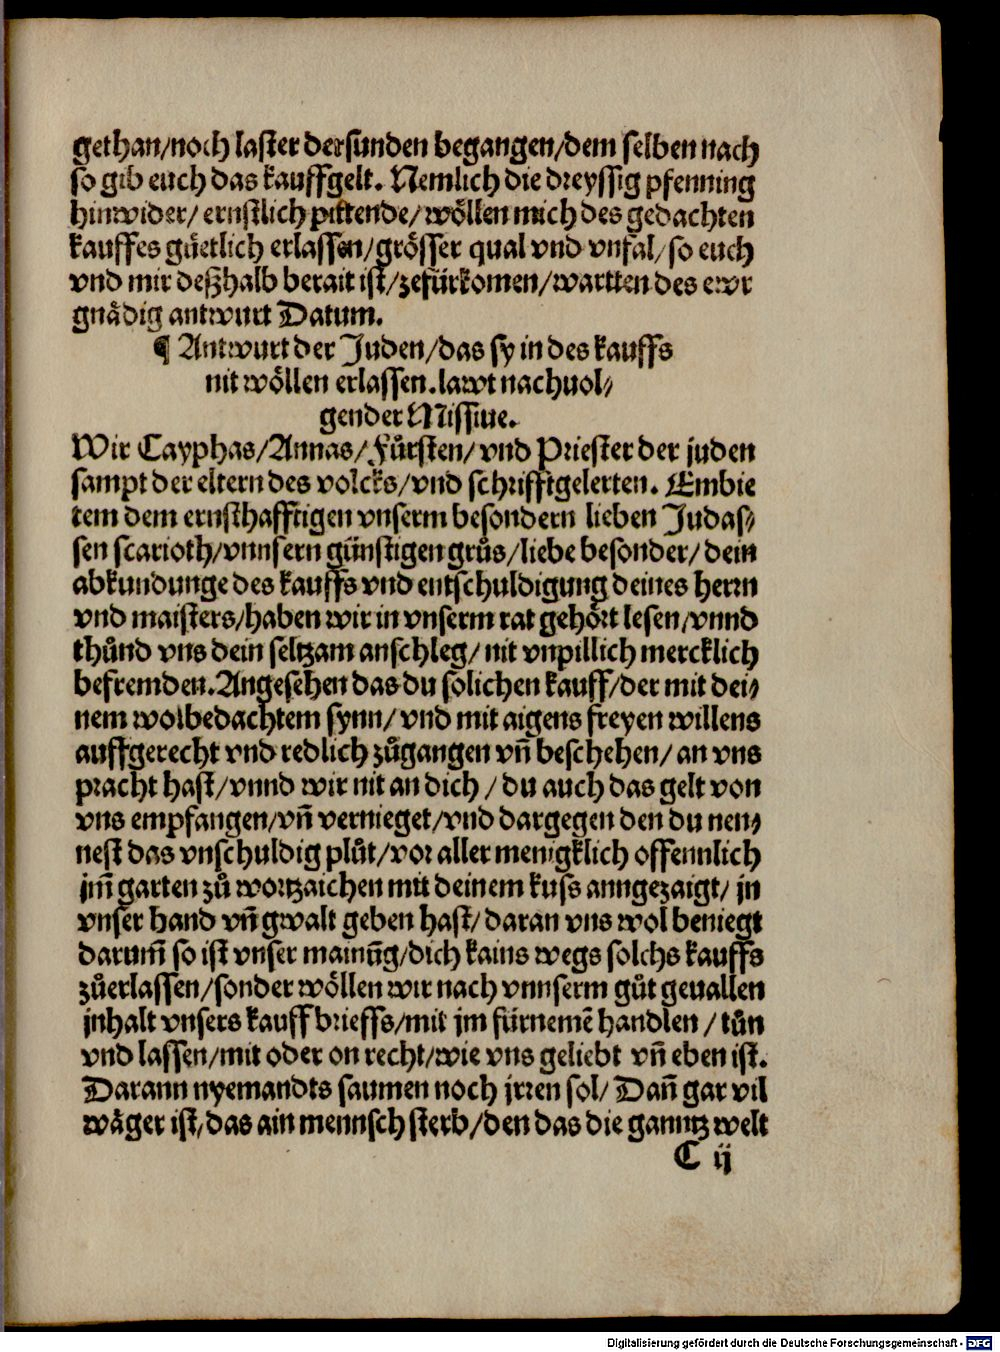 gethan/noch laster der sunden begangen/dem selben nach
so gib euch das kauffgelt. Nemlich die dreyssig pfenning
hinwider/ ernstlich pittende/ wöllen mich des gedachten
kauffes güetlich erlassen/grösser qual vnd vnfal/so euch
vnd mir deßhalb berait ist/zefürkomen/wartten des ewr
gnädig antwurt Datum.
¶ Antwurt der Juden/das sy in des kauffs
nit wöllen erlassen.lawt nachuol⸗
gender Missiue.
Wir Cayphas/Annas/Fürsten/vnd Priester der juden
sampt der eltern des volcks/vnd schrifftgelerten. Embie
tem dem ernsthafftigen vnserm besondern lieben Judas⸗
sen scarioth/vnnsern günstigen grůs/liebe besonder/dein
abkundunge des kauffs vnd entschuldigung deines herrn
vnd maisters/haben wir in vnserm rat gehört lesen/vnnd
thůnd vns dein seltzam anschleg/nit vnpillich mercklich
befremden.Angesehen das du solichen kauff/der mit dei⸗
nem wolbedachtem synn/vnd mit aigens freyen willens
auffgerecht vnd redlich zůgangen vñ beschehen/an vns
pracht hast/vnnd wir nit an dich/du auch das gelt von
vns empfangen/vñ vernieget/vnd dargegen den du nen⸗
nest das vnschuldig plůt/vor aller menigklich offennlich
jm̃ garten zů wortzaichen mit deinem kuss anngezaigt/jn
vnser hand vñ gwalt geben hast/daran vns wol beniegt
darum̃ so ist vnser mainũg/dich kains wegs solchs kauffs
zůerlassen/sonder wöllen wir nach vnnserm gůt geuallen
jnhalt vnsers kauffbrieffs/mit jm fürnemẽ handlen/tůn
vnd lassen/mit oder on recht/wie vns geliebt vñ eben ist.
Darann nyemandts saumen noch jrren sol/Dañ gar vil
wäger ist/das ain mennsch sterb/den das die ganntz welt
C ij
Digitalisierung gefördert durch die Deutsche Forschungsgemeinschaft - DFG